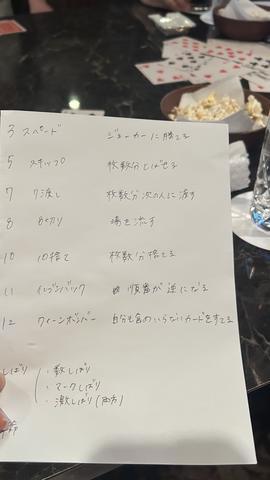 3 スペード ジョーカーに勝てる
5 スキップ 枚数分とばせる
7 7渡し 枚数分次の人に渡す
8 8切り 場を流す
10 10捨て 枚数分捨てる
11 イレブンバック 順番が逆になる
12 クイーンボンバー 自分も含めいらないカードをすてる
しばり ・数しばり
・マークしばり
・激しばり(両方)